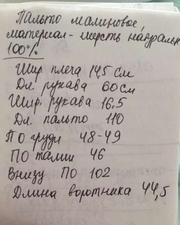 Пальто малиновое,
материал - шерсть натуральн
100%
Шир плеча 14,5 см
Дл. рукава 60 см
Шир. рукава 16,5
Дл. пальто 110
По груди 48-49
По талии 46
Внизу ПО 102
Длина воротника 44,5